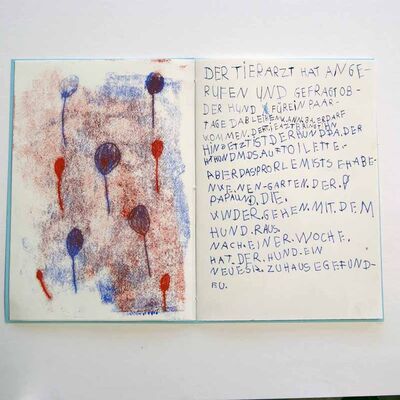 DER TIERARZT HAT ANGE-
RUFEN UND GEFRAGT OB-
DER HUND FÜR EIN PAAR-
TAGE DABLEIBEN KANN. JA ER DARF
KOMMEN. DER TIERARZT BRINGT IHN
HIN. JETZT IST DER HUND DA. DER
HUND MUS AUF TOILETTE.
ABER DAS PRORLEM IST SIE HABE-
N KEINEN GARTEN. DER
PAPA UND. DIE.
KINDER. GEHEN. MIT. DEM
HUND. RAUS.
NACH. EINER. WOCHE.
HAT. DER. HUND. EIN
NEUES. ZUHAUSE GEFUND-